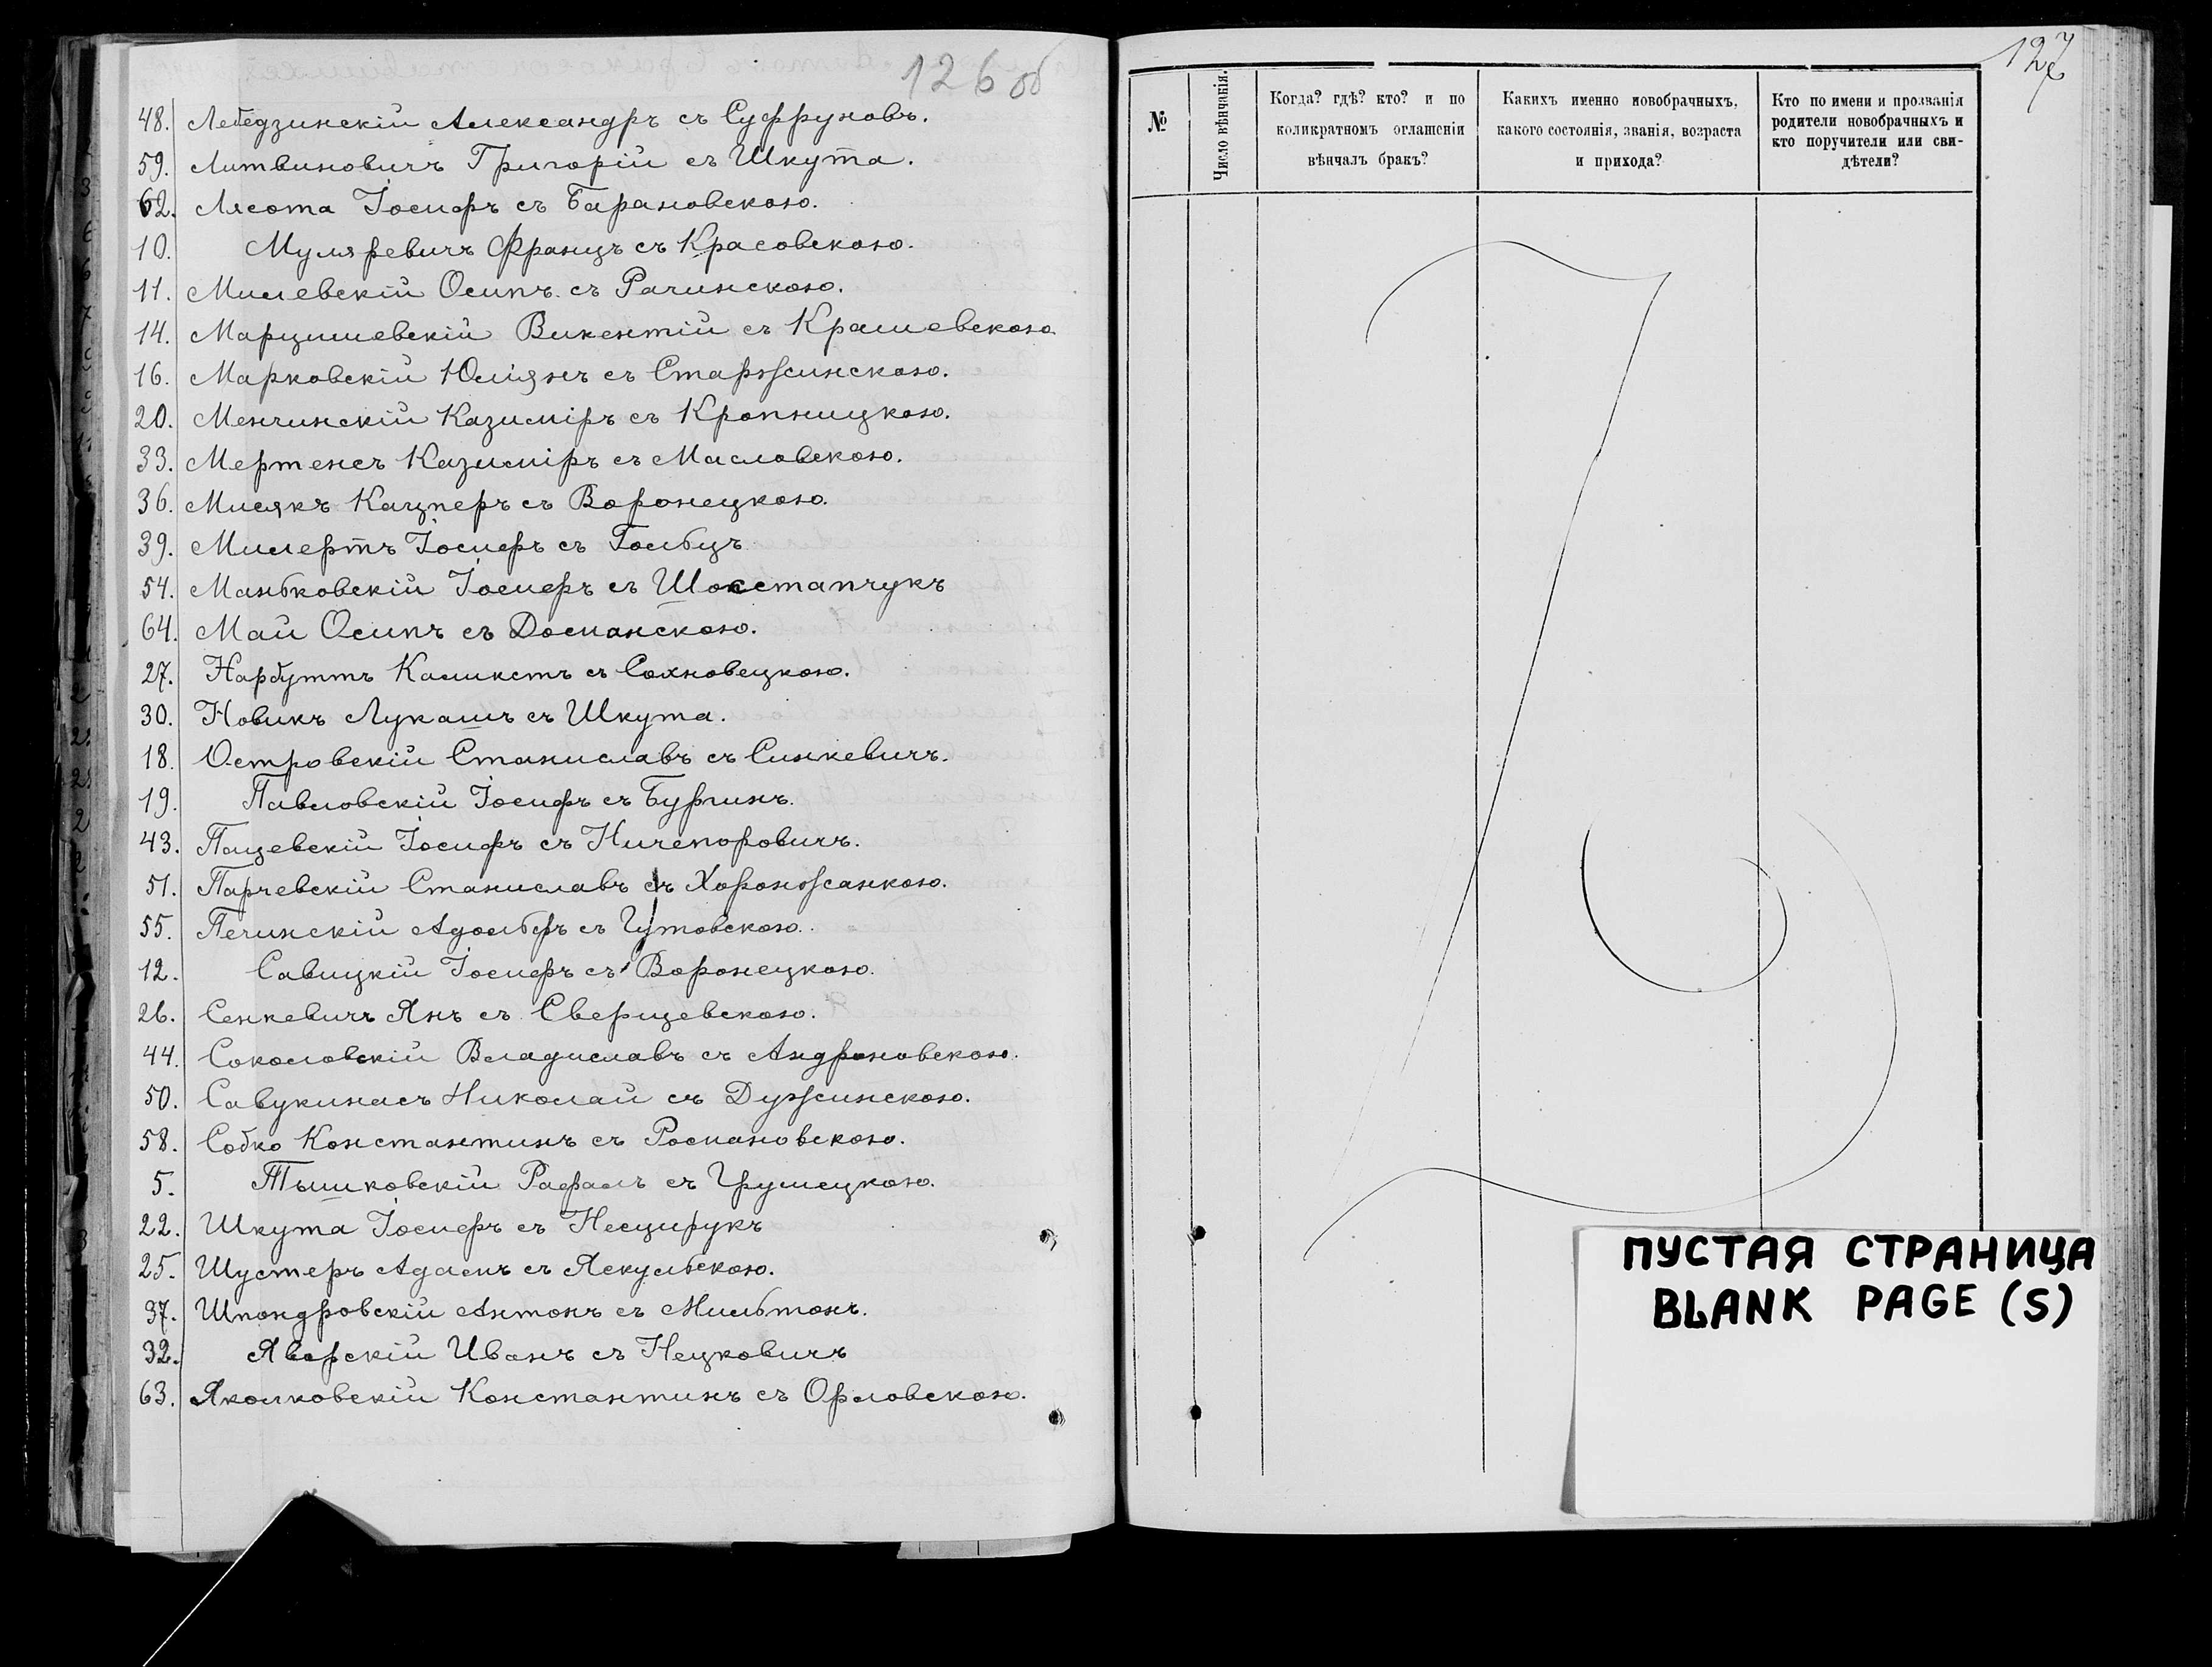 126 об
48. Лебедзинскій Александръ съ Суффруновъ.
59. Литвиновичъ Григорій съ Шкута.
62. Лясота Іосифъ съ Барановскою.
10. Муляревичъ Францъ съ Красовскою.
11. Милевскій Осипъ съ Рачинскою.
14. Марцишевскій Викентій съ Крашевскою
16. Марковскій Юліянъ съ Старжинскою.
20. Менчинскій Казиміръ съ Кропницкою.
33. Мертенсъ Казиміръ съ Масловскою.
36. Мисякъ Кацперъ съ Воронецкою.
39. Милертъ Іосифъ съ Гольбцъ
54. Маньковскій Іосифъ съ Шокстапчукъ
64. Май Осипъ съ Доманскою.
27. Нарбуттъ Каликстъ съ Сохновецкою.
30. Новикъ Лукашъ съ Шкута.
18. Островскій Станиславъ съ Синкевичъ.
19. Павловскій Іосифъ съ Бургинъ.
43. Пацевскій Іосифъ съ Ничепоровичъ.
51. Парчевскій Станиславъ съ Хоронжанкою.
55. Печинскій Адольфъ съ Гутовскою.
12. Савицкій Іосифъ съ Воронецкою.
26. Сенкевичъ Янъ съ Сверщевскою.
44. Соколовскій Владиславъ съ Андроновскою.
50. Савукинасъ Николай съ Дужинскою.
58. Собко Константинъ съ Романовскою.
5. Тышковскій Рафалъ съ Грушецкою.
22. Шкута Іосифъ съ Несцирукъ
25. Шустеръ Адамъ съ Яскульскою.
37. Шпондровскій Антонъ съ Мильтонъ.
32. Яворскій Иванъ съ Нецковичъ
63. Якомковскій Константинъ съ Орловскою.
127
№
Число вѣнчанія.
Когда? гдѣ? кто? и по
коликратномъ оглашеніи
вѣнчалъ бракъ?
Какихъ именно новобрачныхъ,
какого состоянія, званія, возраста
и прихода?
Кто по имени и прозванія
родители новобрачныхъ и
кто поручители или сви-
дѣтели?
ПУСТАЯ СТРАНИЦА
BLANK PAGE (S)